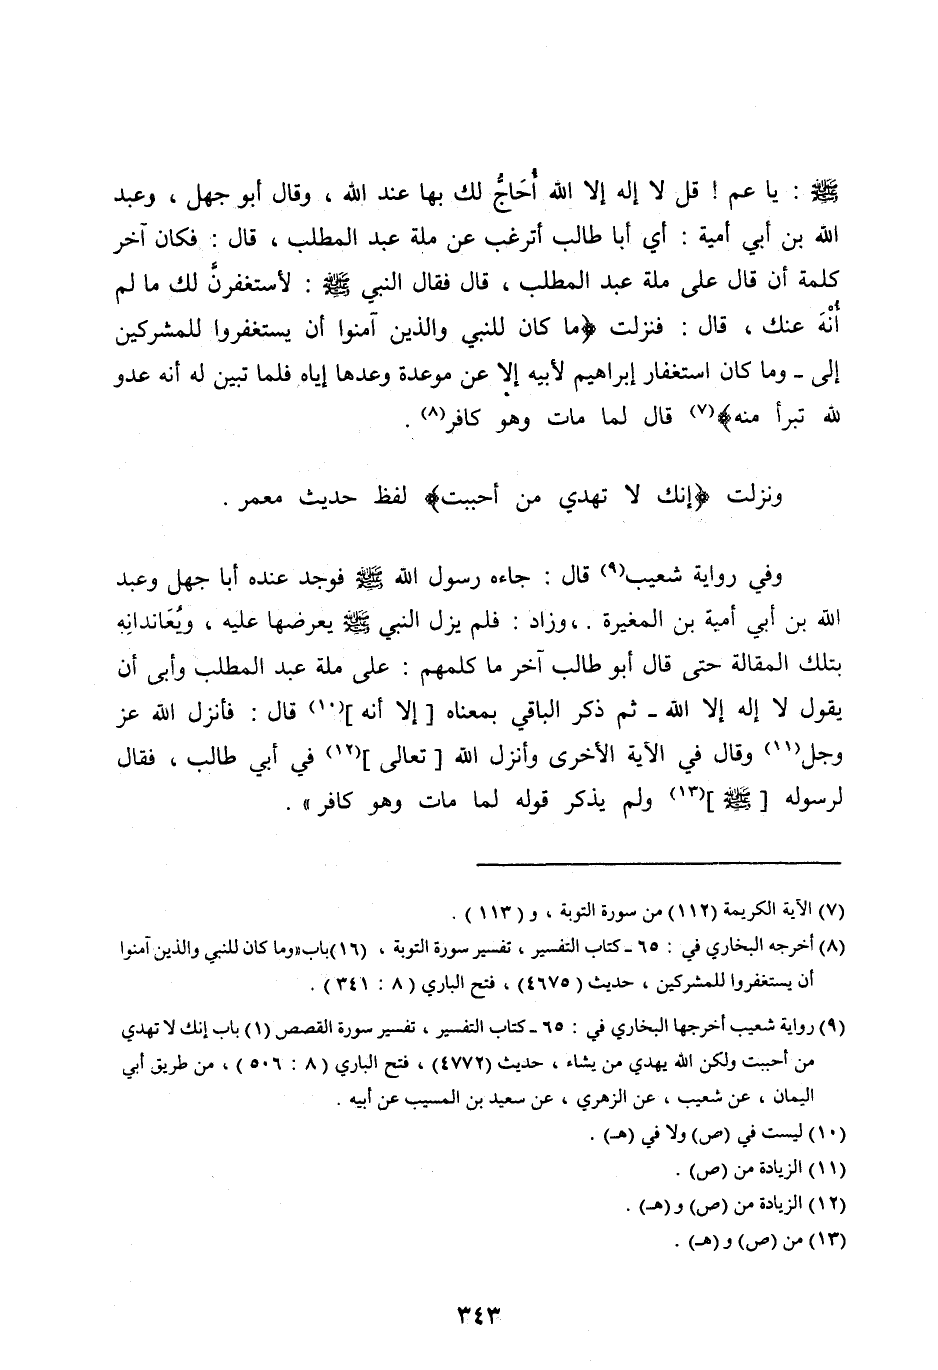 ﷺ : يا عم ! قل لا إله إلا الله أُحَاجُّ لك بها عند الله ، وقال أبو جهل ، وعبد
الله بن أبي أمية : أي أبا طالب أترغب عن ملة عبد المطلب ، قال : فكان آخر
كلمة أن قال على ملة عبد المطلب ، قال فقال النبي ﷺ : لأستغفرنَّ لك ما لم
أُنْهَ عنك ، قال : فنزلت ﴿ما كان للنبي والذين آمنوا أن يستغفروا للمشركين
إلى ـ وما كان استغفار إبراهيم لأبيه إلا عن موعدة وعدها إياه فلما تبين له أنه عدو
لله تبرأ منه﴾(٧) قال لما مات وهو كافر(٨) .
ونزلت ﴿إنك لا تهدي من أحببت﴾ لفظ حديث معمر .
وفي رواية شعيب(٩) قال : جاءه رسول الله ﷺ فوجد عنده أبا جهل وعبد
الله بن أبي أمية بن المغيرة . ،وزاد : فلم يزل النبي ﷺ يعرضها عليه ، ويُعَاندانِهِ
بتلك المقالة حتى قال أبو طالب آخر ما كلمهم : على ملة عبد المطلب وأبى أن
يقول لا إله إلا الله ـ ثم ذكر الباقي بمعناه [ إلا أنه ](١٠) قال : فأنزل الله عز
وجل(١١) وقال في الآية الأخرى وأنزل الله [ تعالى ](١٢) في أبي طالب ، فقال
لرسوله [ ﷺ ](١٣) ولم يذكر قوله لما مات وهو كافر» .
(٧) الآية الكريمة (١١٢) من سورة التوبة ، و ( ١١٣ ) .
(٨) أخرجه البخاري في : ٦٥ ـ كتاب التفسير ، تفسير سورة التوبة ، (١٦)باب«وما كان للنبي والذين آمنوا
أن يستغفروا للمشركين ، حديث ( ٤٦٧٥) ، فتح الباري ( ٨ : ٣٤١ ) .
(٩) رواية شعيب أخرجها البخاري في : ٦٥ ـ كتاب التفسير ، تفسير سورة القصص (١) باب إنك لا تهدي
من أحببت ولكن الله يهدي من يشاء ، حديث (٤٧٧٢) ، فتح الباري ( ٨ : ٥٠٦ ) ، من طريق أبي
اليمان ، عن شعيب ، عن الزهري ، عن سعيد بن المسيب عن أبيه .
(١٠) ليست في (ص) ولا في (هـ) .
(١١) الزيادة من (ص) .
(١٢) الزيادة من (ص) و (هـ) .
(١٣) من (ص) و (هـ) .
٣٤٣